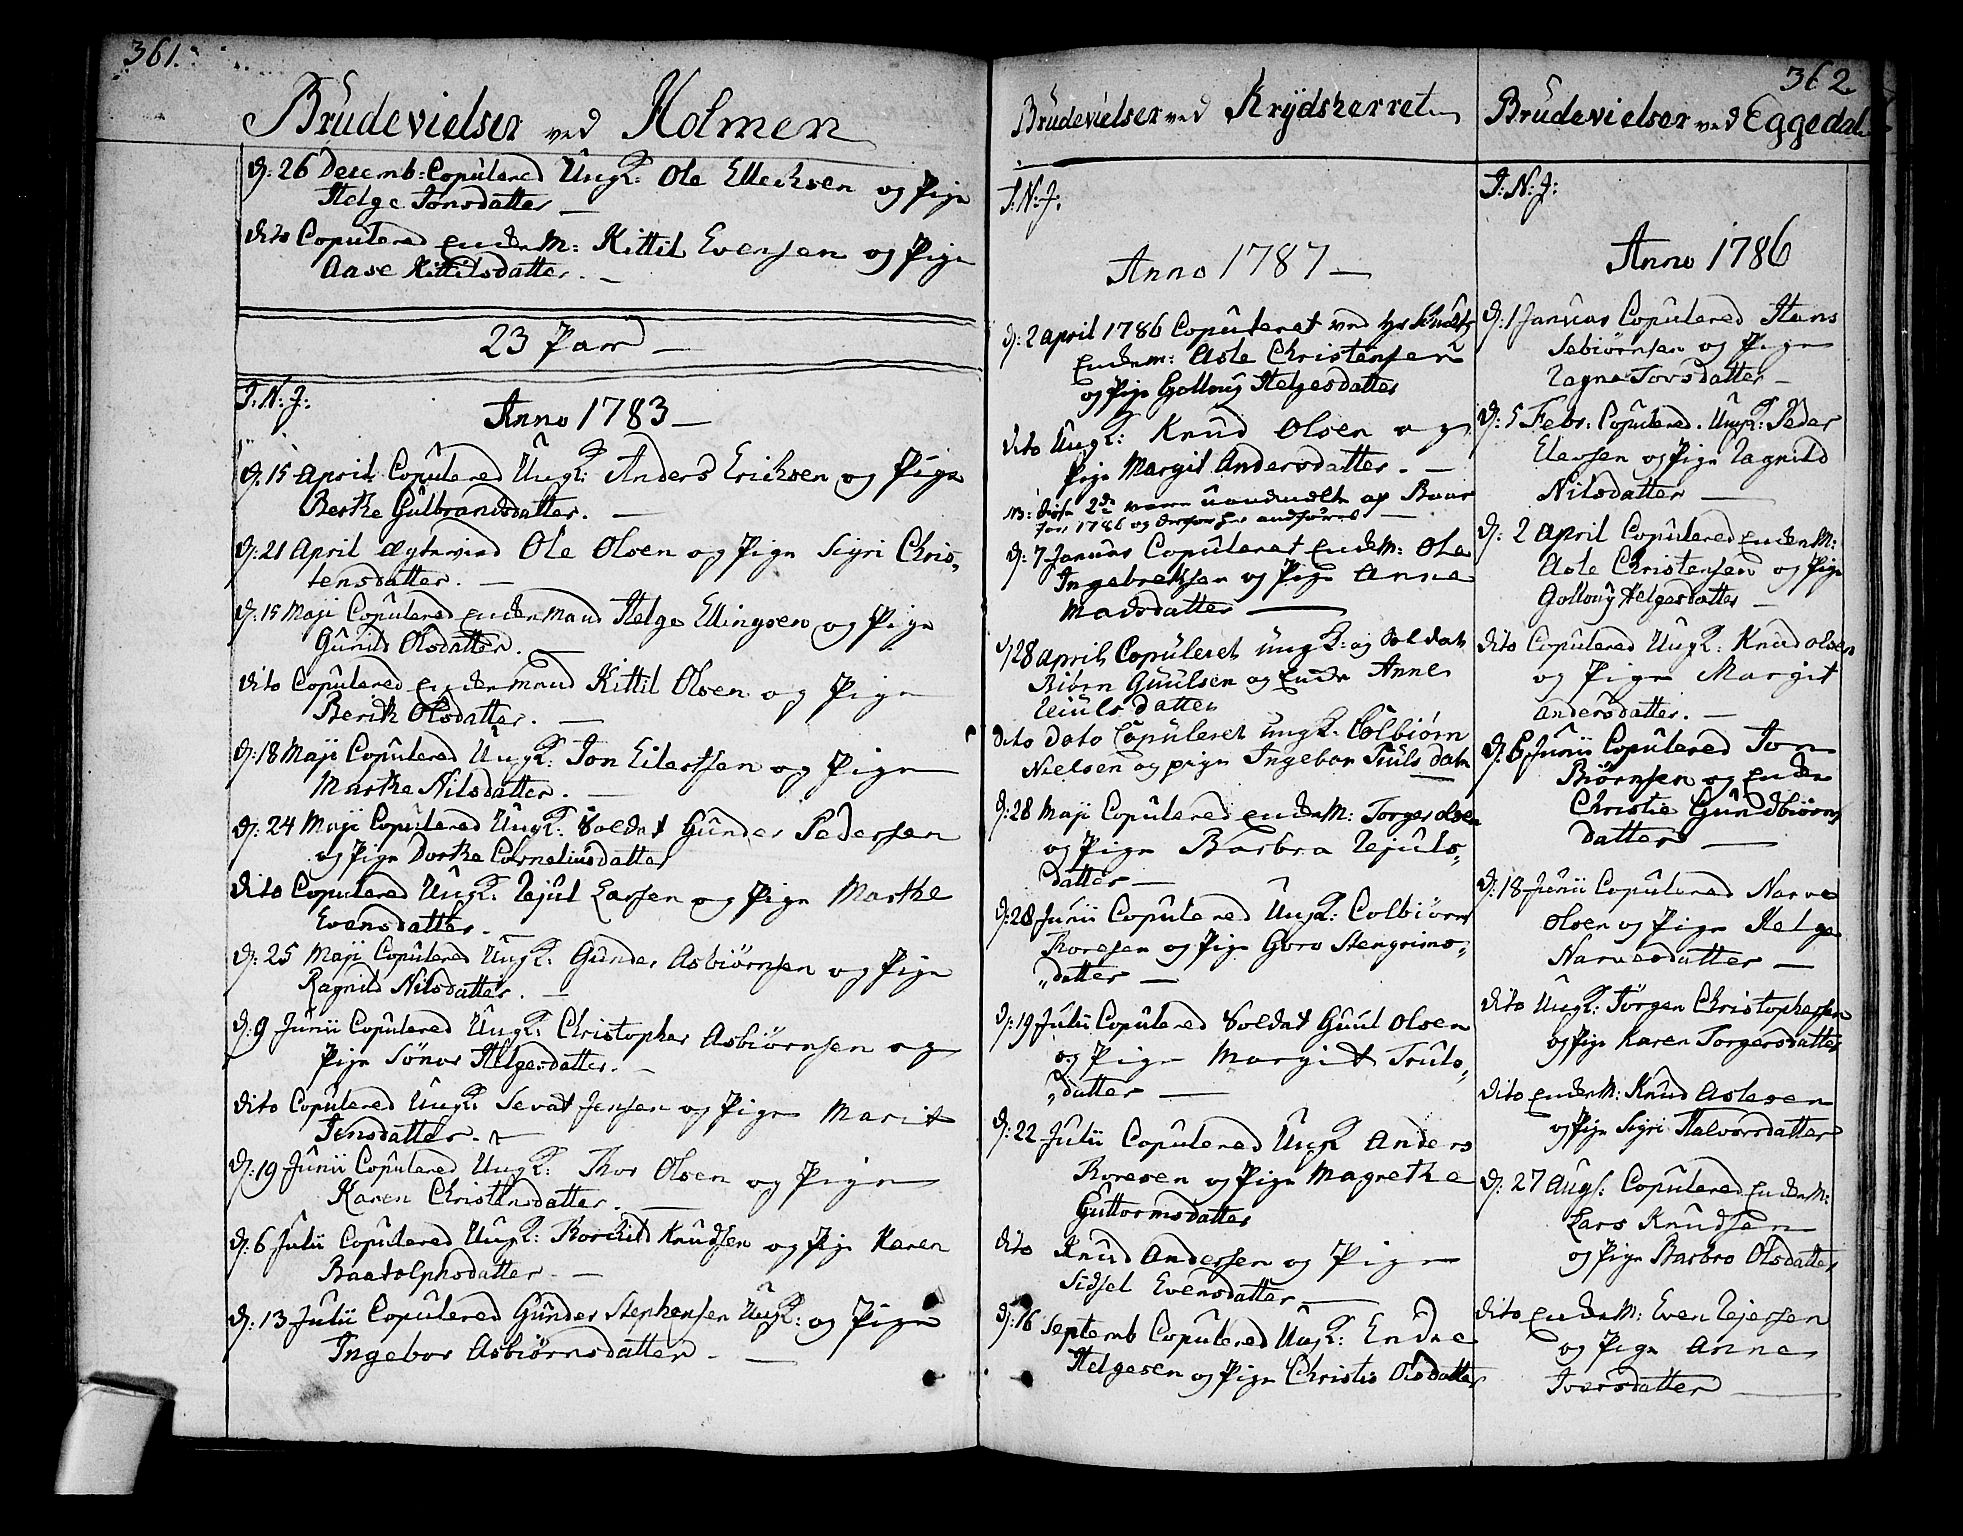 361.
Brudevielser ved Holmen
d: 26 Decemb: Copulered Ungk: Ole Ellechsen og Pige
Helge Jonsdatter —
dito Copulered EnckeM: Kittil Evensen og Pige
Aase Kittilsdatter. —
23 Par —
I. N. J:
Anno 1783 —
d: 15 April Copulered Ungk: Anders Erichsen og Pige
Berthe Gulbrandsdatter. —
d: 21 April Ole Olsen og Pige Sigri Chris-
tensdatter. —
d: 15 Maji Copulered Enckemand Helge Ellingsen og Pige
Gunild Olsdatter. —
dito Copulered Enckemand Kittil Olsen og Pige
Berith Olsdatter. —
d: 18 Maji Copulered Ungk: Jon Eilertsen og Pige
Marthe Nilsdatter. —
d: 24 Maji Copulered Ungk: Soldat Gunder Pedersen
og Pige Dorthe Cornelius datter
dito Copulered Ungk: Tjul Larsen og Pige Marthe
Evensdatter. —
d: 25 Maji Copulered Ungk: Gunder Asbiørnsen og Pige
Ragnild Nilsdatter. —
d: 9 Junii Copulered Ungk: Christopher Asbiørnsen og
Pige Sønov Helgesdatter. —
dito Copulered Ungk: Sevat Jensen og Pige Marit
Jensdatter. —
d: 19 Junii Copulered Ungk: Thor Olsen og Pige
Karen Christensdatter. —
d: 6 Julii Copulered Ungk: Knudsen og Pige Karen
Baadolphsdatter —
d: 13 Julii Copulered Gunder Stephensen Ungk: og Pige
Ingebor Asbiørnsdatter. —
Brudevielser ved Krydsherret
I: N: J:
Anno 1787 —
d: 2 April 1786 Copuleret ved
Enckem: Asle Christensen
og Pige Golloug Helgesdatter
dito Ungk: Knud Olsen og
Pige Margit Andersdatter. —
NB: disse 2de
1786 og derfor her anføred —
d: 7 Januar Copuleret EnckeM: Ole
Ingebrethsen og Pige Anne
Madsdatter —
d 28 April Copuleret ungk: og Soldat
Guulsen og Encke Anne
datter
dito dato Copuleret ungk. Colbiørn
Nielsen og pige Ingebor Truls datr
d: 28 Maji Copulered EnckeM: Torger Olsen
og Pige Barbra Tjuls-
datter —
d: 28 Junii Copulered Ungk: Colbiørn
Thoresen og Pige Goro Stengrims-
datter —
d: 19 Julii Copulered Soldat Guul Olsen
og Pige Margit Truls-
datter —
d: 22 Julii Copulered Ungk Anders
Thoresen og Pige Magrethe
Guttormsdatter
dito Knud Andersen og Pige
Sidsel Evensdatter —
d: 16 Septemb Copulered Ungk: Endre
Helgesen og Pige Christi Olsdatter
362
Brudevielser ved Eggedal
I: N: J:
Anno 1786
d: 1 Januar Copulered Hans
Sebiørnsen og Pige
Ragne Torsdatter —
d: 5 Febr: Copulered. Ungk: Peder
Elersen og Pige Ragnild
Nilsdatter —
d: 2 April Copulered EnckeM:
Asle Christensen og Pige
Golloug Helgesdatter —
dito Copulered Ungk: Knud Olsen
og Pige Margit
Andersdatter. —
d: 6 Junii Copulered Jon
Biørnsen og Encke
Christie Gundbiørns
datter —
d: 18 Junii Copulered Narve
Olsen og Pige Helge
Narvesdatter —
dito Ungk: Jørgen Christophersen
og Pige Karen Torgersdatter
dito EnckeM: Knud Aslesen
og Pige Sigri Halvorsdatter
d: 27 Augs: Copulered EnckeM:
Lars Knudsen
og Pige Barbro Olsdatter
dito EnckeM: Even Rejersen
og Pige Anne
Iversdatter —